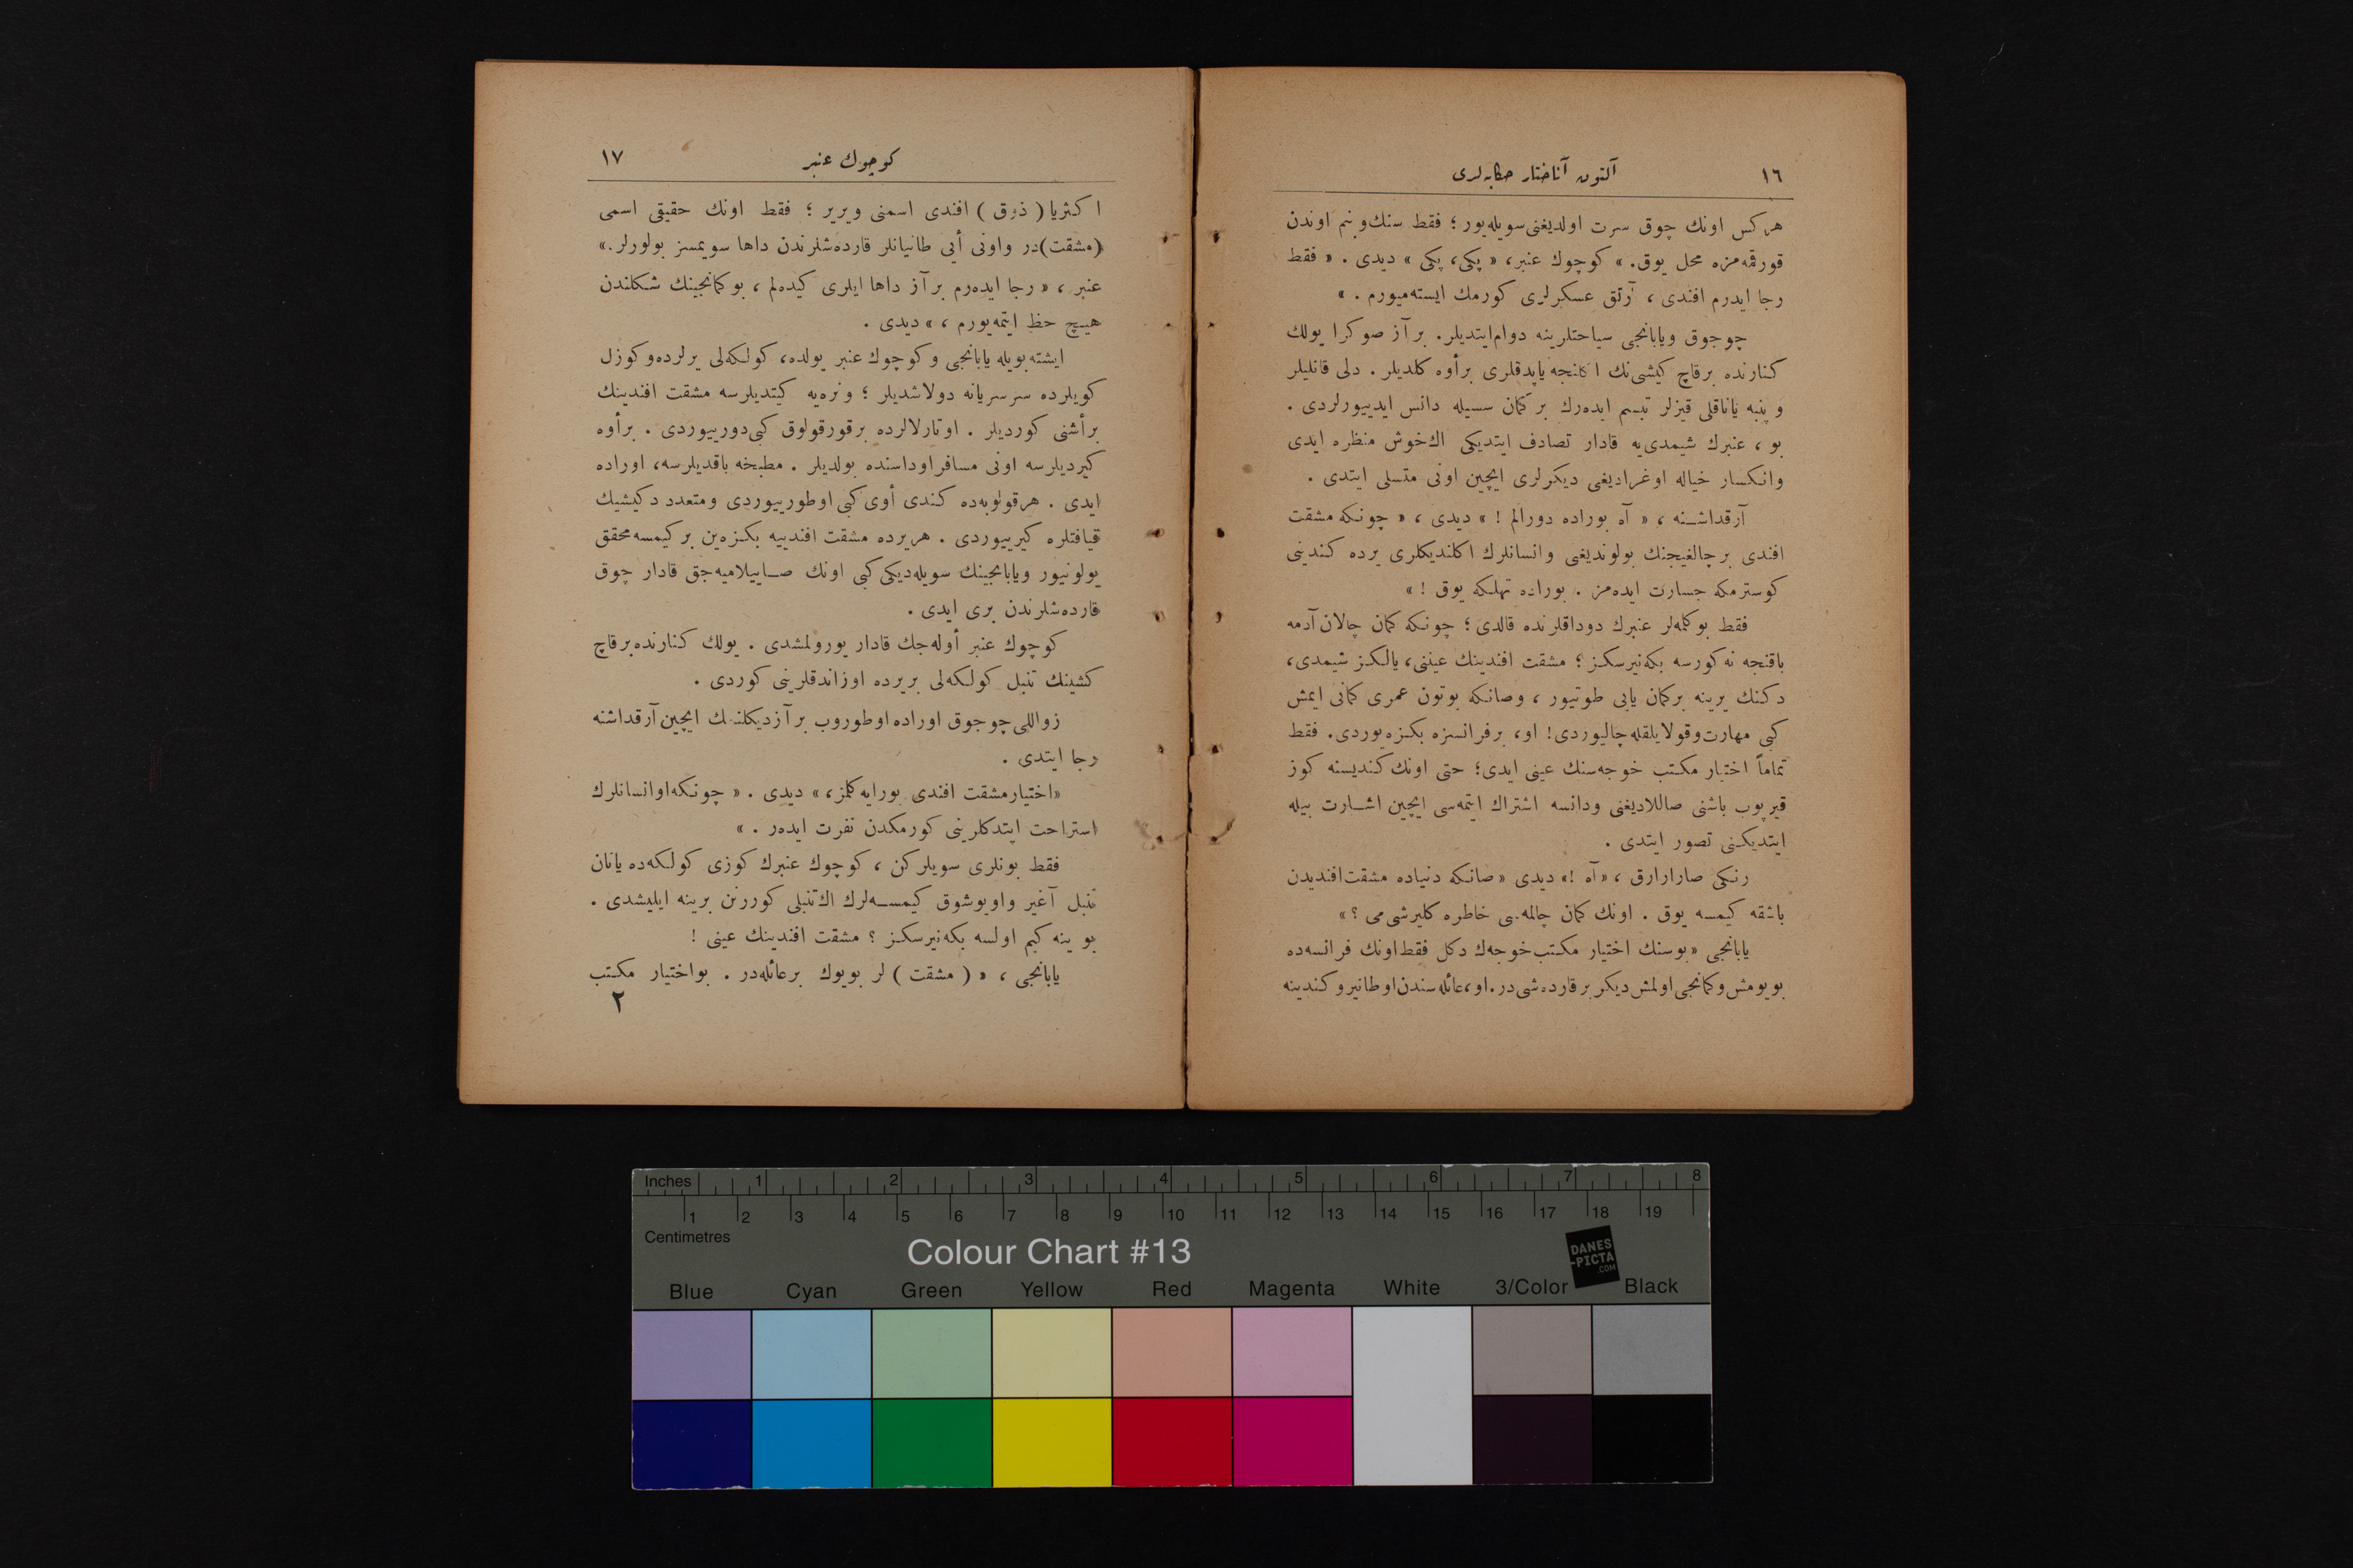 ١٦
آلتون آناختار حكايه‌لری
هركس اونك چوق سرت اولديغنی سويله‌يور ؛ فقط سنك‌وبنم اوندن
قورقمه‌مزه محل يوق. » كوچوك عنبر، « پكی، پكی » ديدی . « فقط
رجا ايدرم افندی ، آرتق عسكرلری كورمك ايسته‌ميورم . »
چوجوق ويابانجی سياحتلرينه دوام‌ايتديلر. بر آز صوكرا يولك
كنارنده برقاچ كيشی‌نك اكلنجه ياپدقلری برأوه كلديلر . دلی قانليلر
و پنبه ياناقلی قيزلر تبسم ايده‌رك بر كمان سسيله دانس ايدييورلردی .
بو ، عنبرك شيمدی‌يه قادار تصادف ايتديكی اك‌خوش منظره ايدی
وانكسار خياله اوغراديغی ديكرلری ايچين اونی متسلی ايتدی .
آرقداشنه ، « آه بوراده دورالم ! » ديدی ، « چونكه مشقت
افندی بر چالغيجنك بولونديغی وانسانلرك اكلنديكلری يرده كندينی
كوسترمكه جسارت ايده‌مز . بوراده تهلكه يوق ! »
فقط بوكلمه‌لر عنبرك دوداقلرنده قالدی ؛ چونكه كمان چالان آدمه
باقنجه نه كورسه بكه‌نيرسكز ؛ مشقت افندينك عيننی، يالكز شيمدی،
دكنك يرينه بركمان يابی طوتيور ، وصانكه بوتون عمری كمانی ايمش
كبی مهارت‌وقولايلقله چاليوردی! او، برفرانسزه بكزه‌يوردی. فقط
تماماً اختيار مكتب خوجه‌سنك عينی ايدی؛ حتی اونك كنديسنه كوز
قيرپوب باشنی صاللاديغنی ودانسه اشتراك ايتمه‌سی ايچين اشارت بيله
ايتديكنی تصور ايتدی .
رنكی صارارارق ، «آه !» ديدی « صانكه دنياده مشقت‌افنديدن
باشقه كيمسه يوق . اونك كمان چالمه‌سی خاطره كليرشی‌می ؟ »
يابانجی « بوسنك اختيار مكتب خوجه‌ك دكل فقط اونك فرانسه‌ده
بويومش وكمانجی اولمش ديكر برقارده‌شی‌در. او، عائله‌سندن اوطانير و كندينه
كوچوك عنبر
١٧
اكثريا ( ذوق ) افندی اسمنی ويرير ؛ فقط اونك حقيقی اسمی
(مشقت)در واونی أیی طانيانلر قارده‌شلرندن داها سويمسز بولورلر.»
عنبر ، « رجا ايده‌رم برآز داها ايلری كيده‌لم ، بو كمانجينك شكلندن
هيچ حظ ايتمه‌يورم ، » ديدی .
ايشته بويله يابانجی و كوچوك عنبر يولده، كولكه‌لی يرلرده‌و كوزل
كويلرده سرسريانه دولاشديلر ؛ و نره‌يه كيتديلرسه مشقت افندينك
برأشنی كورديلر . اوتارلالرده برقورقولوق كبی‌دورييوردی . برأوه
كيرديلرسه اونی مسافر اوداسنده بولديلر . مطبخه باقديلرسه، اوراده
ايدی . هرقولوبه‌ده كندی أوی كبی اوطورييوردی ومتعدد دكيشيك
قيافتلره كيرييوردی . هريرده مشقت افندييه بكزه‌ين بر كيمسه محقق
بولونيور ويابانجينك سويله‌ديكی كبی اونك صاييلاميه‌جق قادار چوق
قارده‌شلرندن بری ايدی .
كوچوك عنبر أوله‌جك قادار يورولمشدی . يولك كنارنده‌برقاچ
كشينك تنبل كولكه‌لی بريرده اوزاندقلرينی كوردی .
زواللی چوجوق اوراده اوطوروب برآز ديكلنمك ايچين آرقداشنه
رجا ايتدی .
«اختيارمشقت افندی بورايه كلمز، » ديدی . « چونكه اوانسانلرك
استراحت ايتدكلرينی كورمكدن نفرت ايدەر . »
فقط بونلری سويلركن ، كوچوك عنبرك كوزی كولكه‌ده ياتان
تنبل آغير واويوشوق كيمسه‌لرك اك‌تنبلی كورونن برينه ايليشدی .
بو ينه كيم اولسه بكه‌نيرسكز ؟ مشقت افندينك عينی !
يابانجی ، « ( مشقت ) لر بويوك برعائله‌در . بواختيار مكتب
٢
Inches 1 2 3 4 5 6 7 8
1 2 3 4 5 6 7 8 9 10 11 12 13 14 15 16 17 18 19
Centimetres
Colour Chart #13
DANES
-PICTA
.COM
Blue Cyan Green Yellow Red Magenta White 3/Color Black